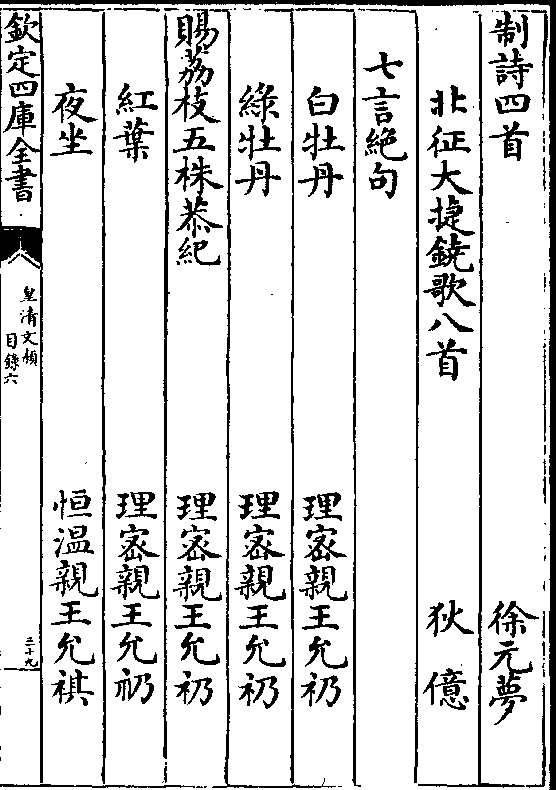 制詩四首　徐元夢
北征大捷鐃歌八首　狄億
七言絕句
白牡丹　理宻親王允礽
綠牡丹　理宻親王允礽
賜荔枝五株恭紀　理宻親王允礽
紅葉　理宻親王允礽
夜坐　恒温親王允祺
欽定四庫全書
皇清文頴
目錄六
三十九